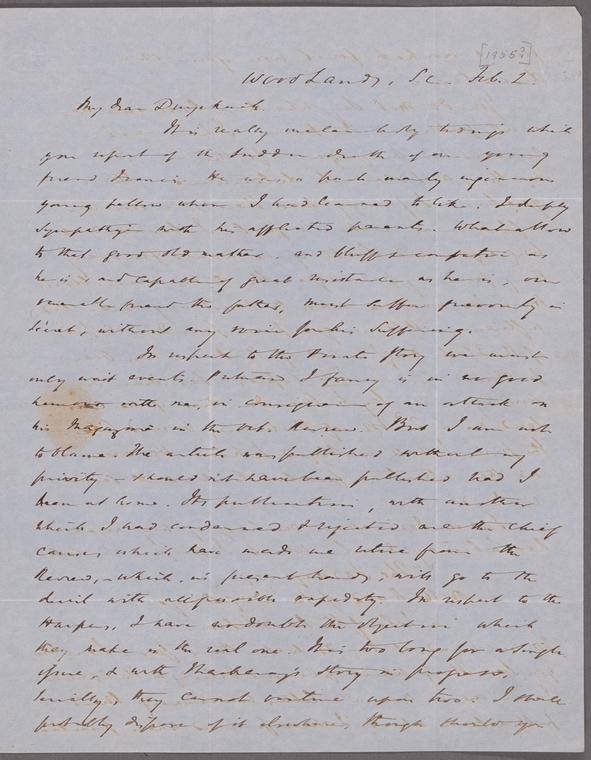 [1855?]
Woodlands, S.C. Feb. 2.
My dear Duyckinck
It is really melancholy tidings which
you report of the sudden death of our young
friend Francis. He was a frank manly ingenuous
young fellow whom I had learned to like. I deeply
sympathize with his afflicted parents. What a blow
to that good old mother, and bluff & as
he is, and capable of great resistance as he is, our
friend the father, must suffer grievously in
secret, without any voice for his suffering.
In respect to the Story we must
only wait events. Putnam I fancy is in no good
humour with me, in consequence of an attack on
his Magazine in the Review. But I am not
to blame. The article was published without my
privity — should not have been published had I
been at home. Its publication, with another
which I had condemned & rejected are the chief
causes which have made me retire from the
Review, – which, in present hands, will go to the
devil with all possible rapidity. In respect to the
Harpers, I have no doubt the objection which
they make is the real one. It is too long for a single
issue, & with Thackeray's story in progress,
serially, they cannot venture upon two. I shall
probably dispose of it elsewhere, though should you